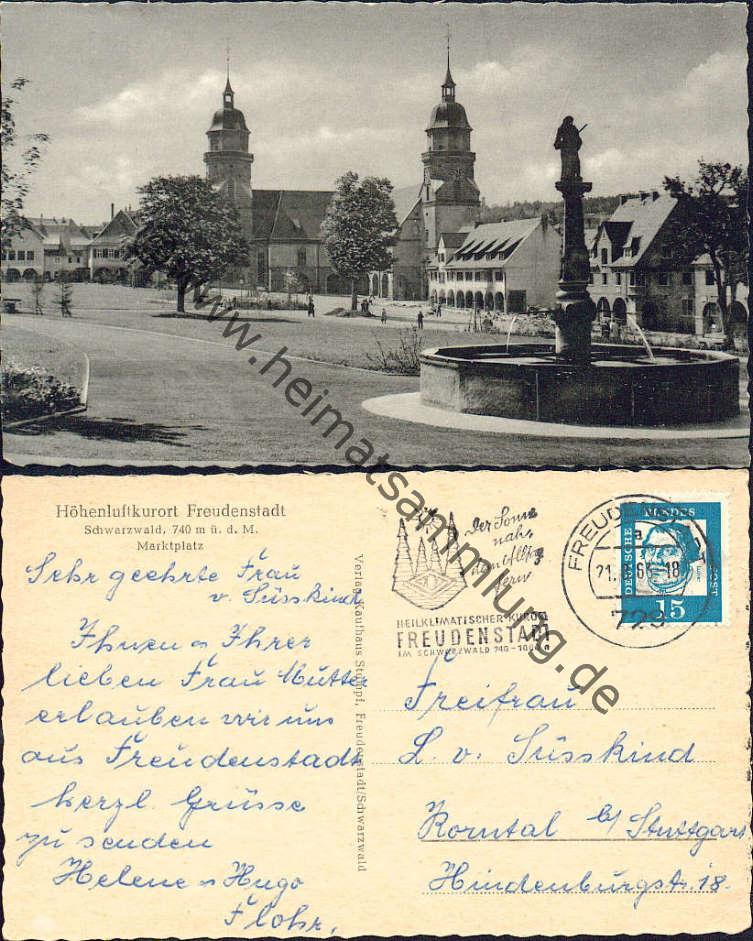 www.heimatsammlung.de
Höhenluftkurort Freudenstadt
Schwarzwald, 740 m ü. d. M.
Marktplatz
Sehr geehrte Frau
v. Süsskind,
Ihnen u Ihrer
lieben Frau Mutter
erlauben wir uns
aus Freudenstadt
herzl. Grüsse
zu senden
Helene u Hugo
Flohr.
Verlag: Kaufhaus Stumpf, Freudenstadt/Schwarzwald
Der Sonne
nah
dem Alltag
fern
HEILKLIMATISCHER KURORT
FREUDENSTADT
IM SCHWARZWALD 740-1000 m
FREUDENSTADT
a
-18
729
DEUTSCHE BUNDESPOST
15
Freifrau
L. v. Süsskind
Korntal b/ Stuttgart
Hindenburgstr. 18.